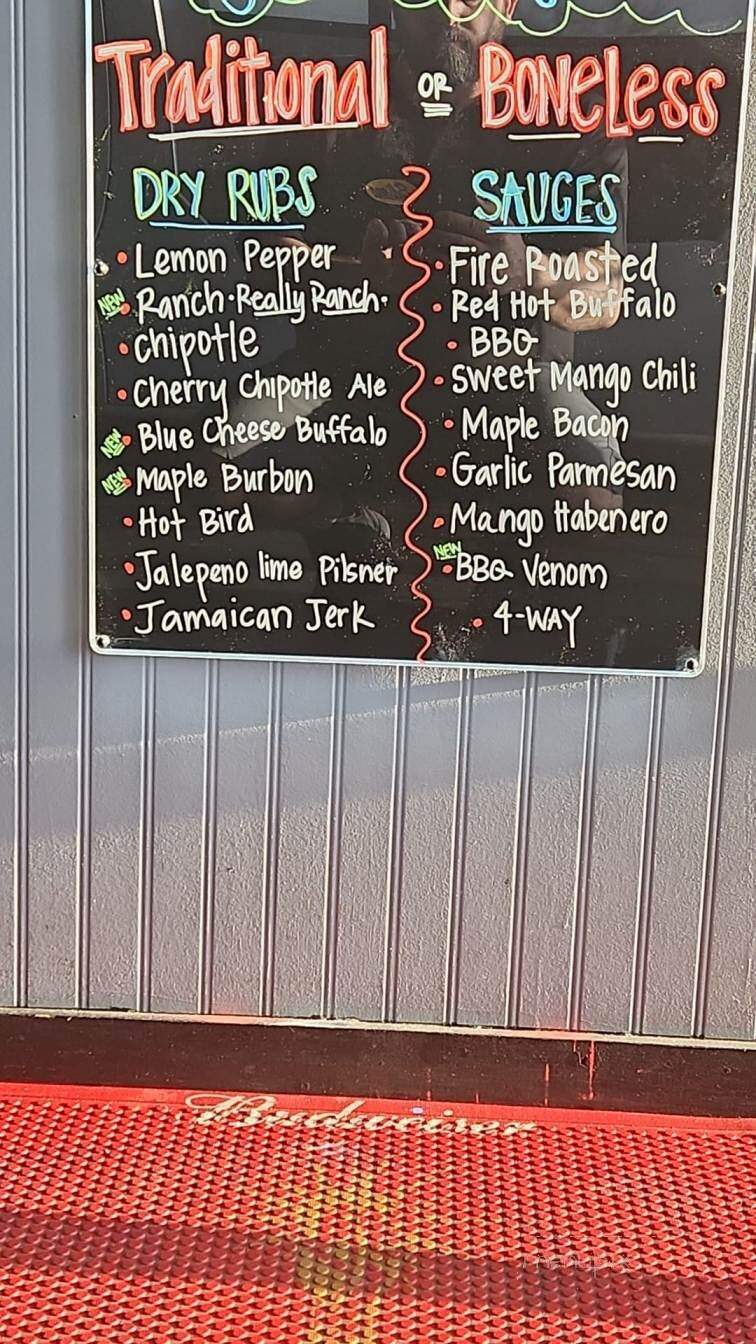 Traditional OR BONELESS
DRY RUBS
• Lemon Pepper
NEW • Ranch · Really Ranch ·
• Chipotle
• Cherry Chipotle Ale
NEW • Blue Cheese Buffalo
NEW • Maple Burbon
• Hot Bird
• Jalepeno lime Pilsner
• Jamaican Jerk
SAUGES
• Fire Roasted
• Red Hot Buffalo
• BBQ
• Sweet Mango Chili
• Maple Bacon
• Garlic Parmesan
• Mango Habenero
NEW • BBQ Venom
• 4-WAY
Budweiser
menupix